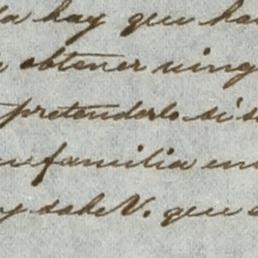 la hay que ha
obtener ning
pretenderlo si s
familia en
y sabe V. que